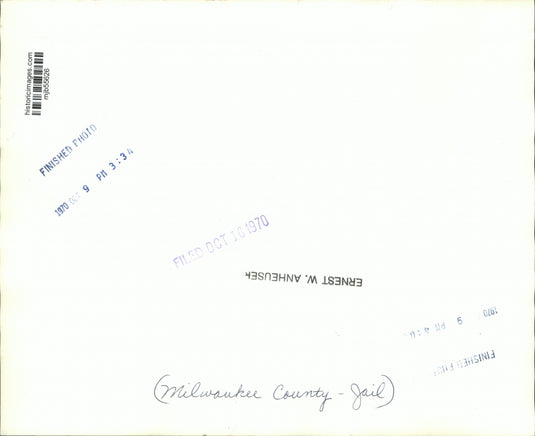 historicimages.com
mjb55626
FINISHED PHOTO
1970 OCT 9 PM 3:34
FILED OCT 16 1970
ERNEST W. ANHEUSER
1970 9 PM 4:
FINISHED
(Milwaukee County - Jail)